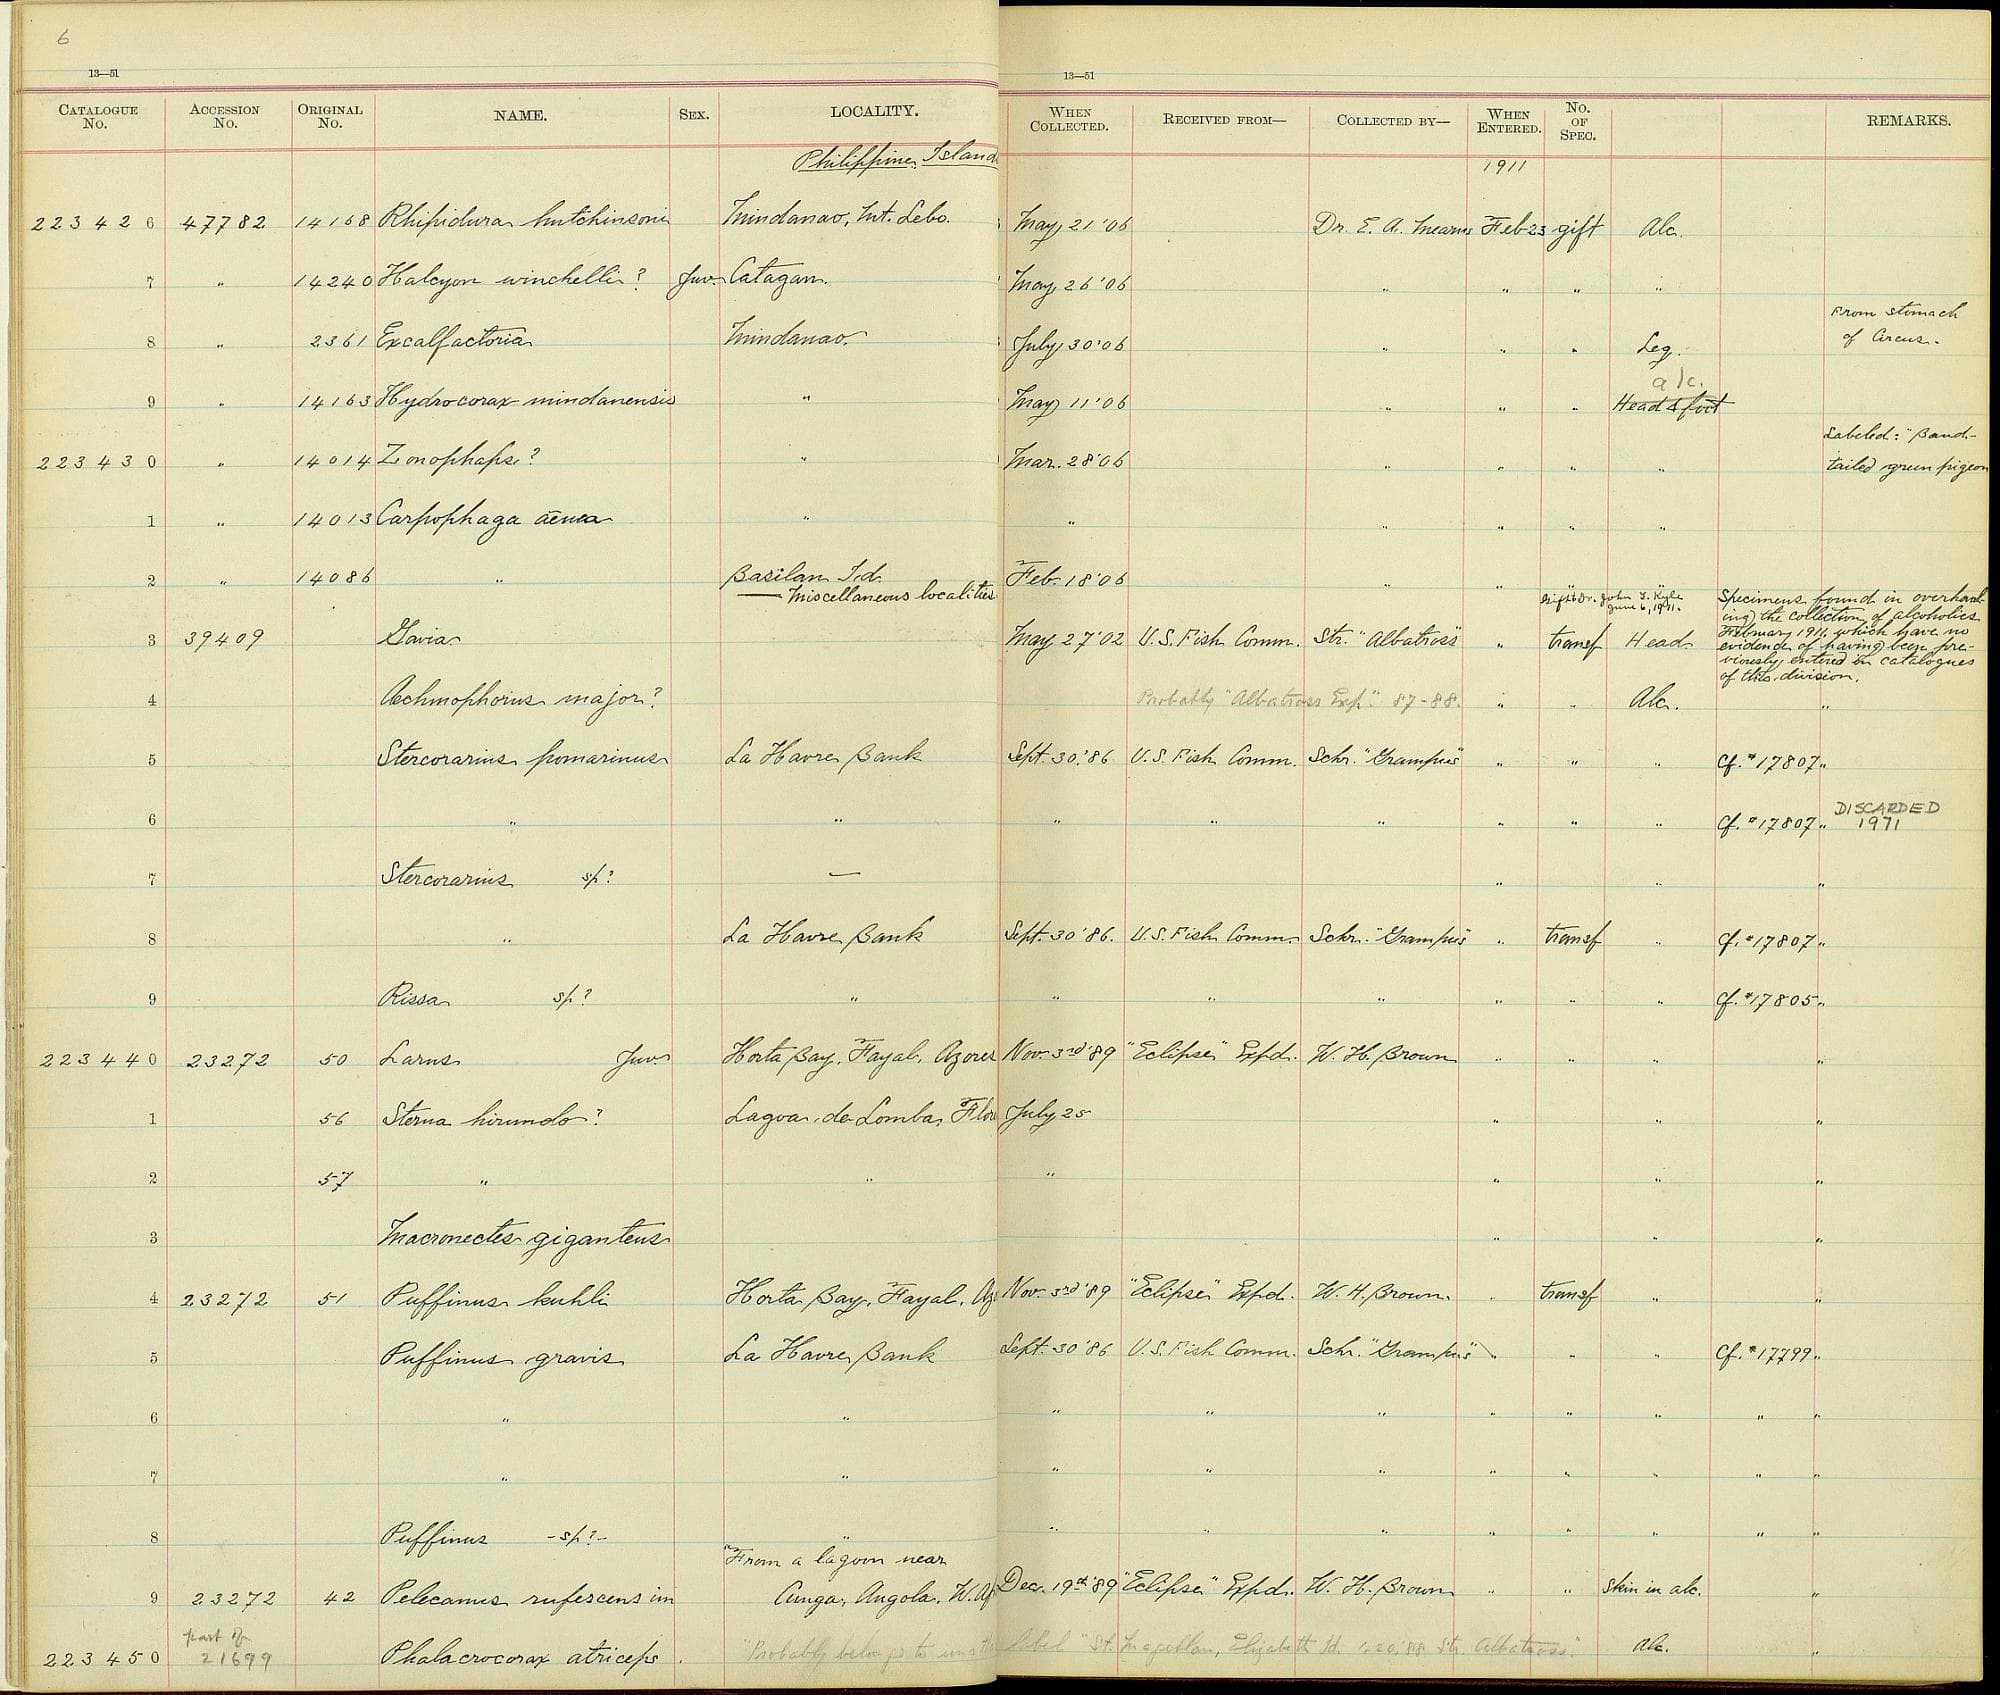 6
13—51
13—51
CATALOGUE No. ACCESSION No. ORIGINAL No. NAME. SEX. LOCALITY. WHEN COLLECTED. RECEIVED FROM— COLLECTED BY— WHEN ENTERED. No. OF SPEC. REMARKS.
Philippine Island 1911
223426 47782 14168 Rhipidura hutchinsoni Mindanao, Mt. Lebo. May 21 '06 Dr. E. A. Mearns Feb 23 gift Alc.
7 " 14240 Halcyon winchelli? Juv. Catagan. May 26 '06 " " " "
From stomach
8 " 2361 Excalfactoria Mindanao. July 30 '06 " " " Leg. of Circus.
alc.
9 " 14163 Hydrocorax mindanensis " May 11 '06 " " " Head & foot
Labeled: "Band-
223430 " 14014 Zonophaps? " Mar. 28 '06 " " " " tailed green pigeon
1 " 14013 Carpophaga aenea " " " " " "
2 " 14086 " Basilan Id. Feb. 18 '06 " "
— Miscellaneous localities
Gift to Dr. John S. Kyle
June 6, 1911.
Specimens found in overhaul-
ing the collection of alcoholics
February 1911, which have no
evidence of having been pre-
viously entered in catalogues
of this division.
3 39409 Gavia May 27 '02 U.S. Fish Comm. Str. "Albatross" " transf Head
4 Aechmophorus major? Probably "Albatross Exp". 87-88. " " Alc. "
5 Stercorarius pomarinus La Havre Bank Sept. 30, '86 U.S. Fish Comm. Schr. "Grampus" " " " Cf. #17807 "
DISCARDED
6 " " " " " " " " Cf. #17807 " 1971
7 Stercorarius sp? — " " "
8 " La Havre Bank Sept. 30 '86. U.S. Fish Comm. Schr. "Grampus" " transf " Cf. #17807 "
9 Rissa sp? " " " " " " " Cf. #17805 "
223440 23272 50 Larus Juv. Horta Bay, Fayal, Azores Nov. 3rd '89 "Eclipse" Expd. W. H. Brown " " " "
1 56 Sterna hirundo? Lagoa de Lomba, Flor July 25 " " "
2 57 " " " " " "
3 Macronectes giganteus " " "
4 23272 51 Puffinus kuhli Horta Bay, Fayal, Az Nov. 3rd '89 "Eclipse" Expd. W. H. Brown. " transf " "
5 Puffinus gravis La Havre Bank Sept. 30 '86 U.S. Fish Comm. Schr. "Grampus" " " " Cf. #17799 "
6 " " " " " " " " " "
7 " " " " " " " " " "
8 Puffinus -sp?- " " " " " " " " "
"From a lagoon near
9 23272 42 Pelecanus rufescens im Cunga, Angola, W. Af Dec. 19th '89 "Eclipse" Expd. W. H. Brown " " Skin in alc. "
part of
223450 21699 Phalacrocorax atriceps. "Probably belongs to label "St. Magellan, Elizabeth Id. 1.20.'88 Str. Albatross". Alc. "